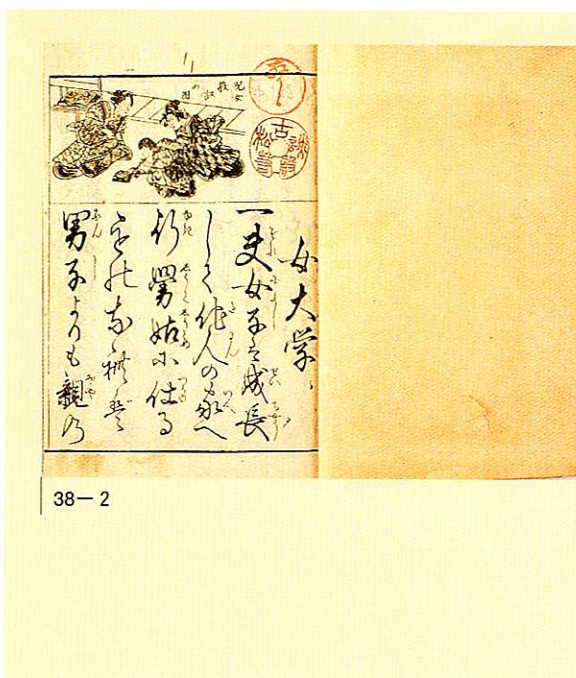 女大学
一夫女子は成長
して他人の家へ
行舅姑に仕る
ものなれば
男子よりも親の
38−2